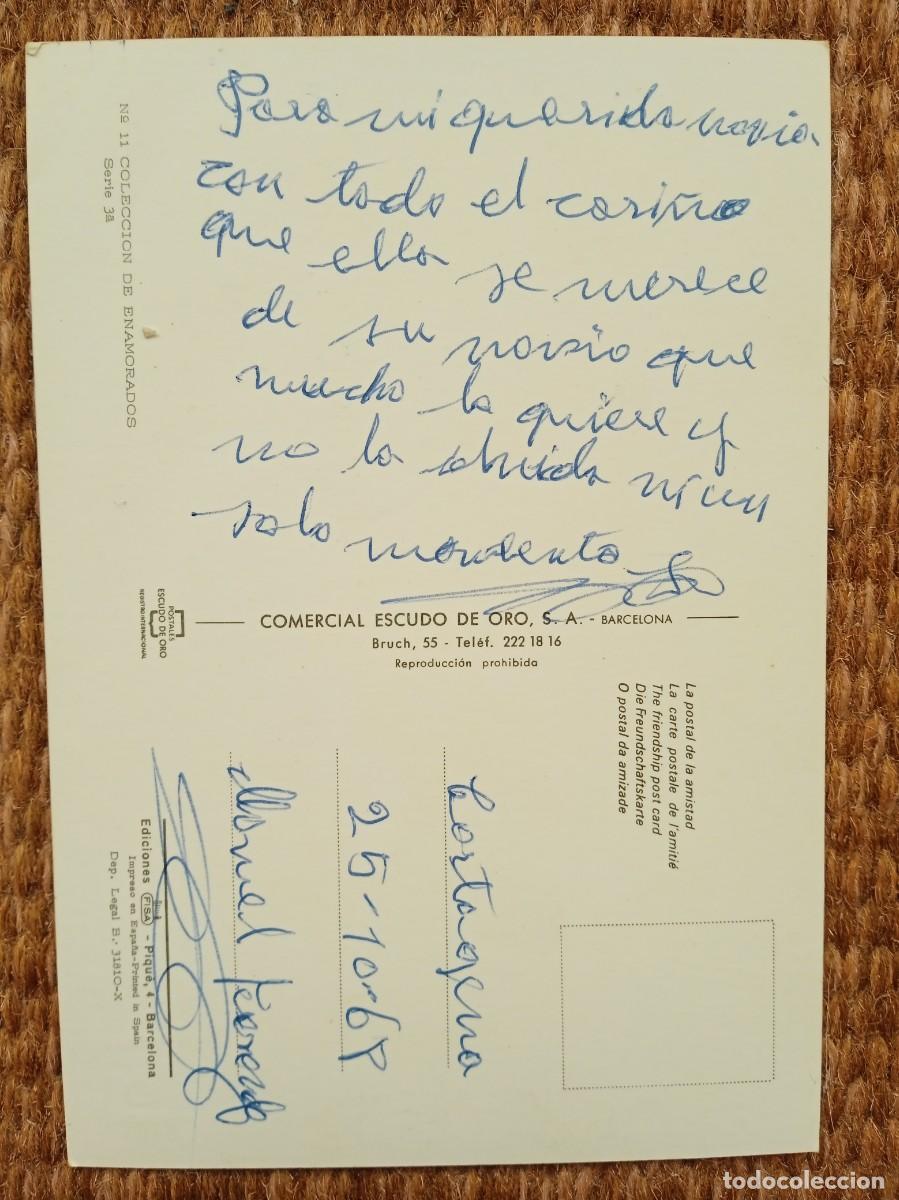 Para mi querida novia
con todo el cariño
que ella se merece
de su novio que
mucho la quiere y
no la olvida ni un
solo momento
Nº 11 COLECCION DE ENAMORADOS
Serie 3ª
POSTALES
ESCUDO DE ORO
REGISTRO INTERNACIONAL
COMERCIAL ESCUDO DE ORO, S. A. - BARCELONA
Bruch, 55 - Teléf. 222 18 16
Reproducción prohibida
La postal de la amistad
La carte postale de l'amitié
The friendship post card
Die Freundschaftskarte
O postal da amizade
Cartagena
25-10-68
Manuel
Ediciones FISA - Piqué, 4 - Barcelona
Impreso en España-Printed in Spain
Dep. Legal B. 31810-X
todocoleccion